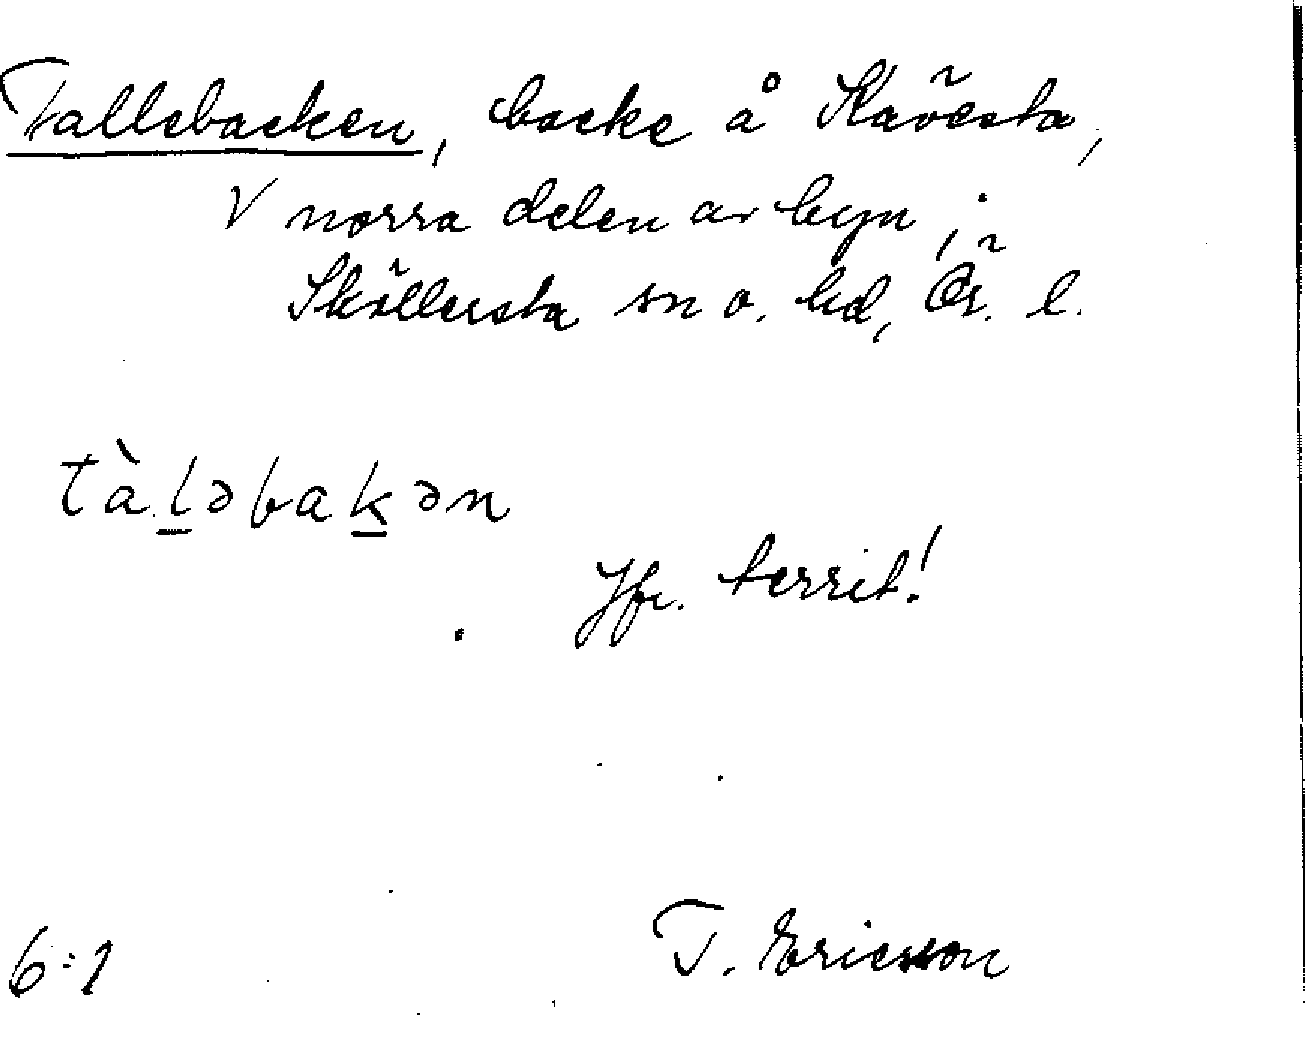 Tallebacken, backe å Kävesta,
V norra delen av byn;
Sköllersta sn o. hd, Ör. l.
tàl̲əbak̲ən
Jfr. territ!
T. Ericsson
6:1